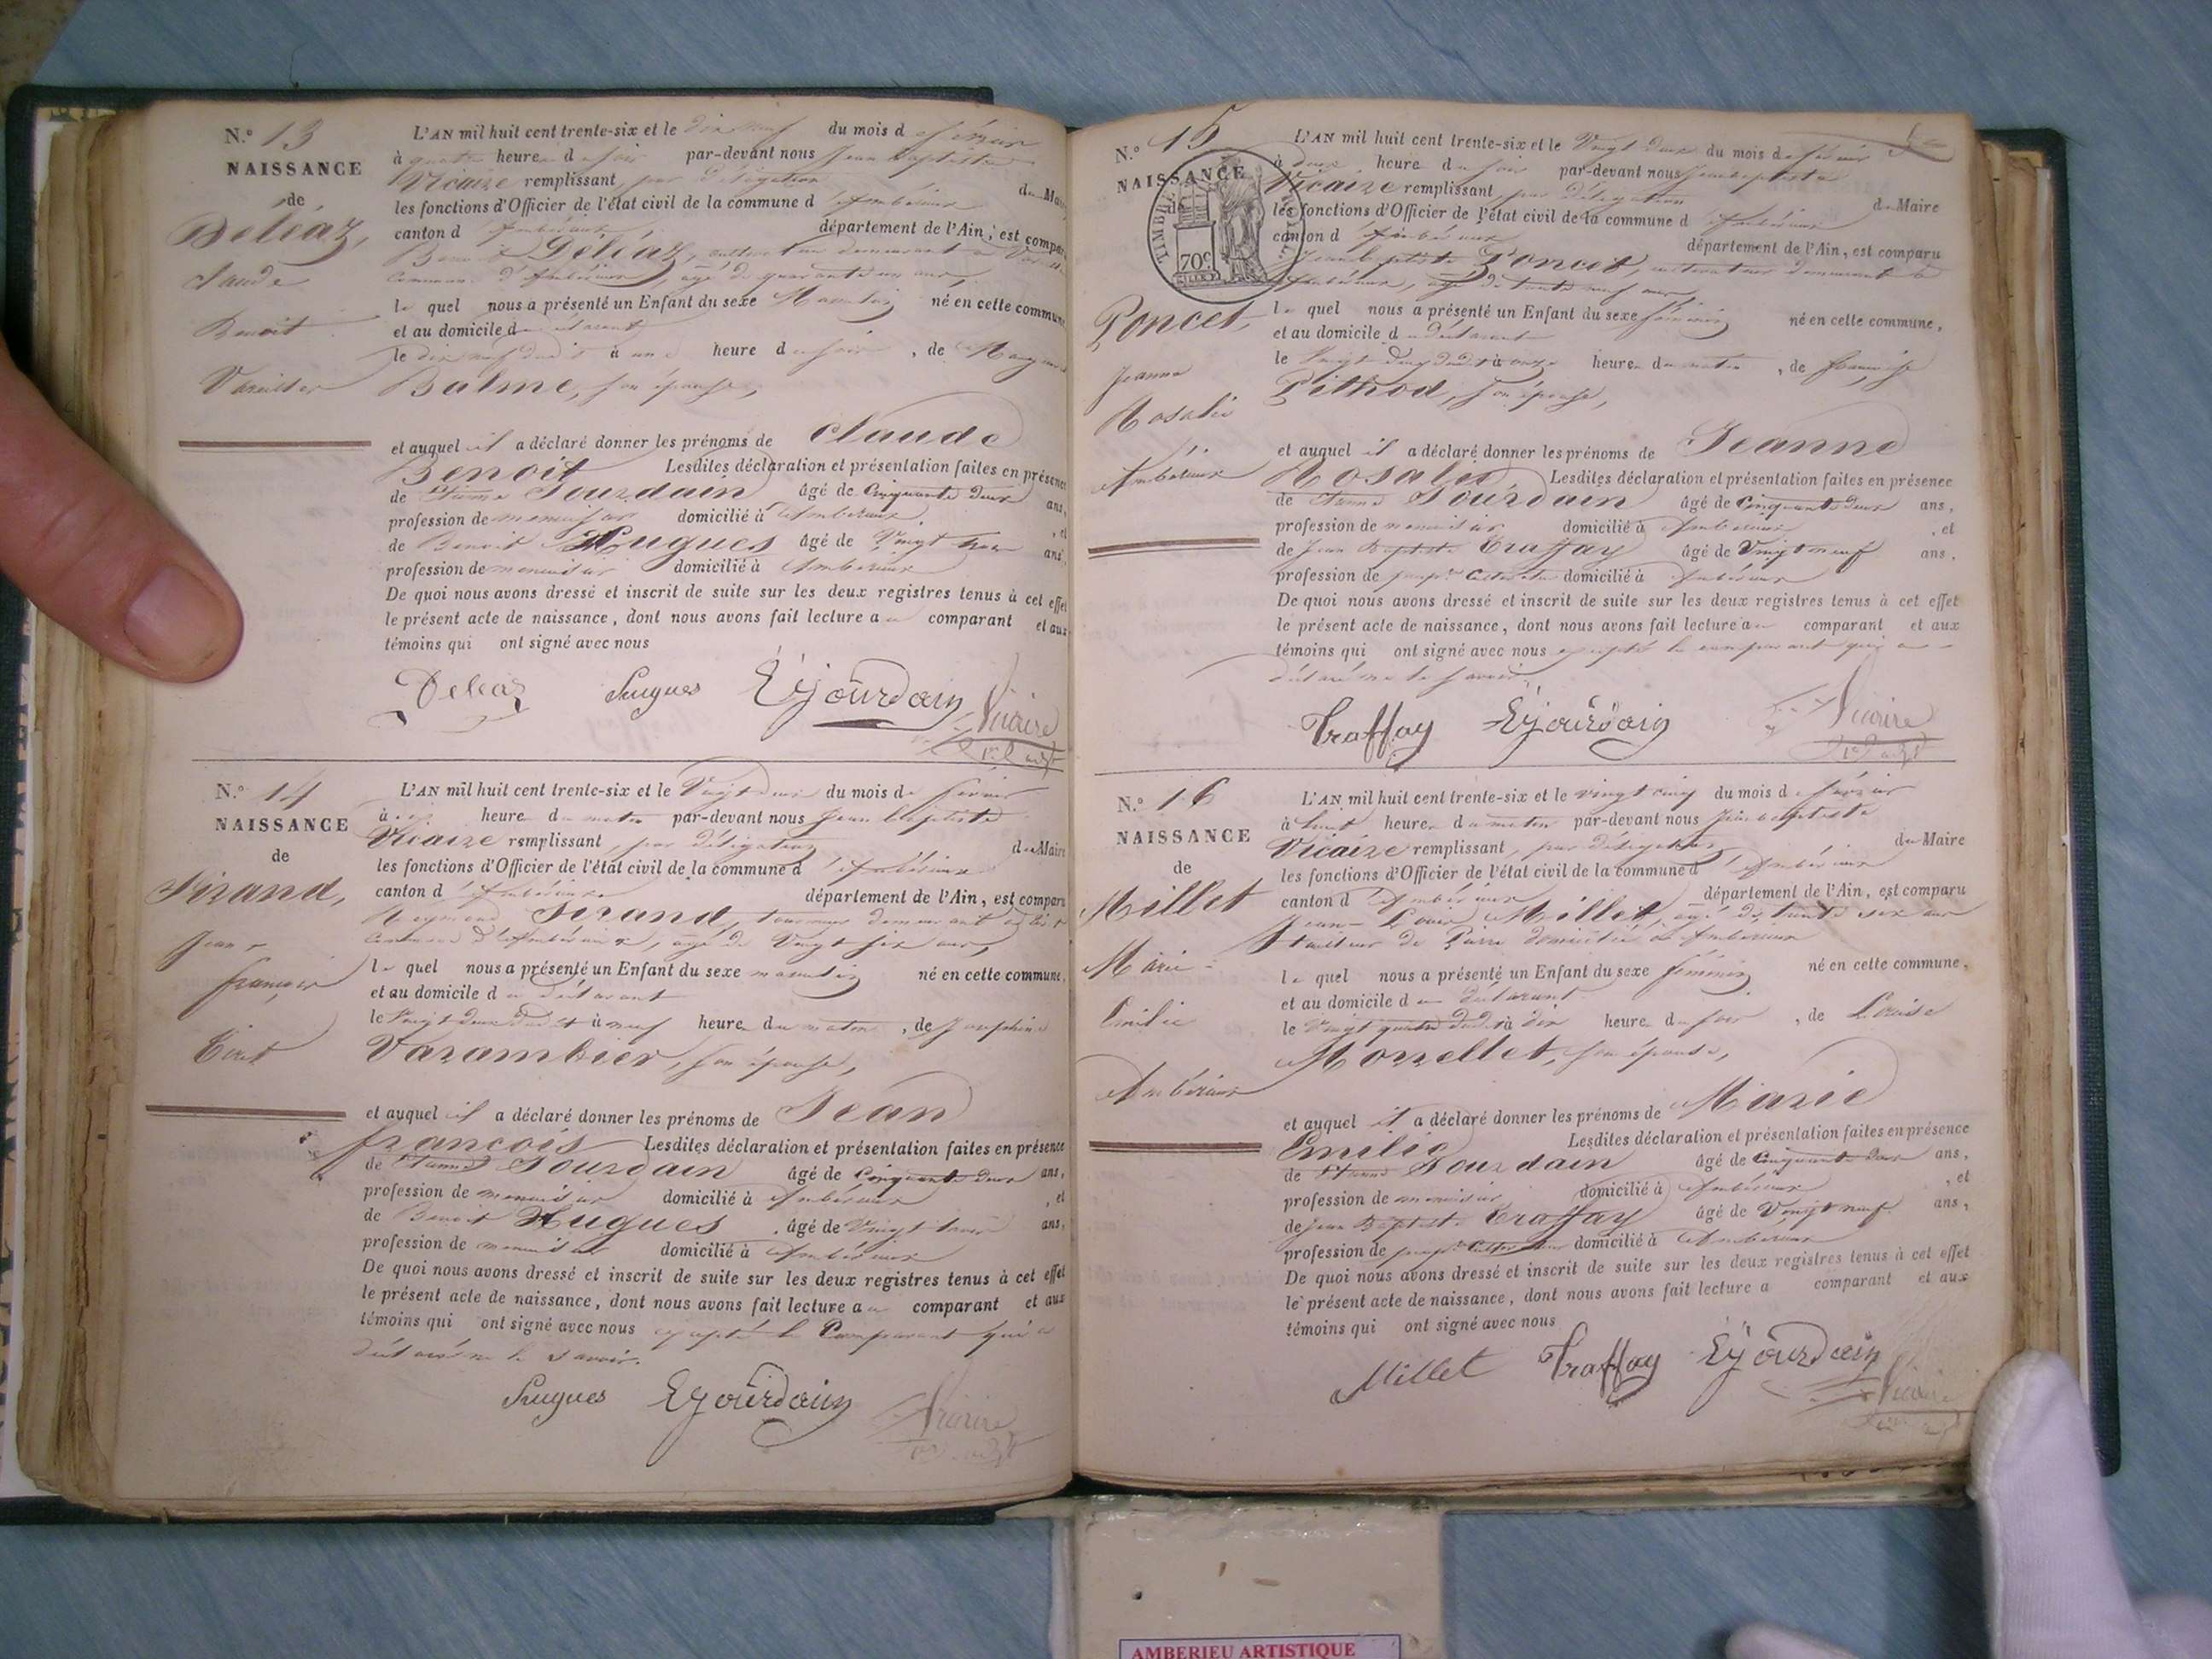 N.º 13
NAISSANCE
de
Déléaz,
Claude
Benoit
Vareilles
L'AN mil huit cent trente-six et le dix neuf du mois de février
à quatre heures du soir par-devant nous Jean Baptiste
Vicaire remplissant, par délégation du Maire
les fonctions d'Officier de l'état civil de la commune d'Ambérieux
canton d'Ambérieux département de l'Ain, est comparu
Benoit Déléaz, cultivateur demeurant à
commune d'Ambérieux, âgé de quarante un ans,
lequel nous a présenté un Enfant du sexe Masculin né en cette commune
et au domicile du déclarant
le dix neuf dudit à une heure du soir, de
Balme, son épouse,
et auquel il a déclaré donner les prénoms de Claude
Benoit Lesdites déclaration et présentation faites en présence
de Etienne Jourdain âgé de Cinquante deux ans,
profession de menuisier domicilié à Ambérieux, et
de Benoit Hugues âgé de Vingt trois ans,
profession de menuisier domicilié à Ambérieux
De quoi nous avons dressé et inscrit de suite sur les deux registres tenus à cet effet
le présent acte de naissance, dont nous avons fait lecture au comparant et aux
témoins qui ont signé avec nous
Deleaz Hugues Ejourdain Vicaire
N.º 14
NAISSANCE
de
Sirand,
Jean
françois
Tiret
L'AN mil huit cent trente-six et le Vingt deux du mois de février
à dix heures du matin par-devant nous Jean baptiste
Vicaire remplissant, par délégation du Maire
les fonctions d'Officier de l'état civil de la commune d'Ambérieux
canton d'Ambérieux département de l'Ain, est comparu
Reymond Sirand, tourneur demeurant à Tiret
commune d'Ambérieux, âgé de Vingt six ans,
lequel nous a présenté un Enfant du sexe masculin né en cette commune,
et au domicile du déclarant
le Vingt deux dudit à neuf heures du matin, de Josephine
Varambier, son épouse,
et auquel il a déclaré donner les prénoms de Jean
françois Lesdites déclaration et présentation faites en présence
de Etienne Jourdain âgé de Cinquante deux ans,
profession de menuisier domicilié à Ambérieux, et
de Benoit Hugues, âgé de Vingt trois ans,
profession de menuisier domicilié à Ambérieux
De quoi nous avons dressé et inscrit de suite sur les deux registres tenus à cet effet
le présent acte de naissance, dont nous avons fait lecture au comparant et aux
témoins qui ont signé avec nous excepté le Comparant qui a
déclaré ne le savoir.
Hugues Ejourdain Vicaire
N.º 15
NAISSANCE
de
TIMBRE
70c
Poncet,
Jeanne
Rosalie
Ambérieux
L'AN mil huit cent trente-six et le Vingt deux du mois de février
à deux heures du soir par-devant nous Jean baptiste
Vicaire remplissant, par délégation du Maire
les fonctions d'Officier de l'état civil de la commune d'Ambérieux
canton d'Ambérieux département de l'Ain, est comparu
Jean baptiste Poncet, cultivateur demeurant à
Ambérieux, âgé de trente neuf ans,
lequel nous a présenté un Enfant du sexe féminin né en cette commune,
et au domicile du déclarant
le Vingt deux dudit à onze heures du matin, de françoise
Pithod, son épouse,
et auquel il a déclaré donner les prénoms de Jeanne
Rosalie Lesdites déclaration et présentation faites en présence
de Etienne Jourdain âgé de Cinquante deux ans,
profession de menuisier domicilié à Ambérieux, et
de Jean Baptiste Traffay âgé de Vingt neuf ans,
profession de domicilié à Ambérieux
De quoi nous avons dressé et inscrit de suite sur les deux registres tenus à cet effet
le présent acte de naissance, dont nous avons fait lecture au comparant et aux
témoins qui ont signé avec nous excepté le comparant qui a
déclaré ne le savoir.
Traffay Ejourdain Vicaire
N.º 16
NAISSANCE
de
Millet
Marie
Emilie
Ambérieux
L'AN mil huit cent trente-six et le vingt cinq du mois de février
à huit heures du matin par-devant nous Jean baptiste
Vicaire remplissant, par délégation du Maire
les fonctions d'Officier de l'état civil de la commune d'Ambérieux
canton d'Ambérieux département de l'Ain, est comparu
Jean-Louis Millet, âgé de trente six ans
tailleur de Pierre domicilié à Ambérieux
lequel nous a présenté un Enfant du sexe féminin né en cette commune,
et au domicile du déclarant
le Vingt quatre dudit à dix heures du soir, de Louise
Morrellet, son épouse,
et auquel il a déclaré donner les prénoms de Marie
Emilie Lesdites déclaration et présentation faites en présence
de Etienne Jourdain âgé de Cinquante deux ans,
profession de menuisier domicilié à Ambérieux, et
de Jean Baptiste Traffay âgé de Vingt neuf ans,
profession de domicilié à Ambérieux
De quoi nous avons dressé et inscrit de suite sur les deux registres tenus à cet effet
le présent acte de naissance, dont nous avons fait lecture a comparant et aux
témoins qui ont signé avec nous
Millet Traffay Ejourdain Vicaire
AMBERIEU ARTISTIQUE